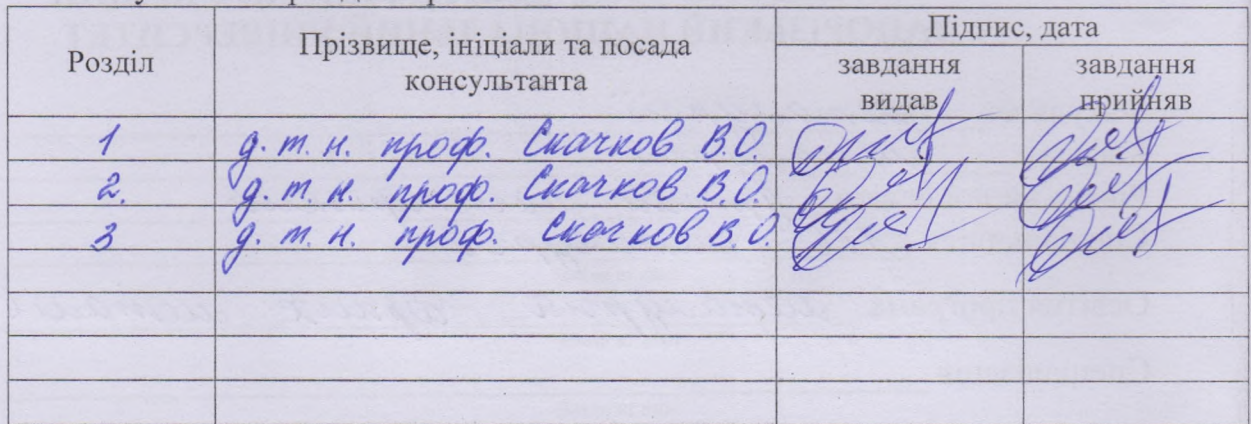 Розділ
Прізвище, ініціали та посада
консультанта
Підпис, дата
завдання
видав
завдання
прийняв
1 д. т. н. проф. Скачков В.О.
2. д. т. н. проф. Скачков В.О.
3 д. т. н. проф. Скачков В.О.